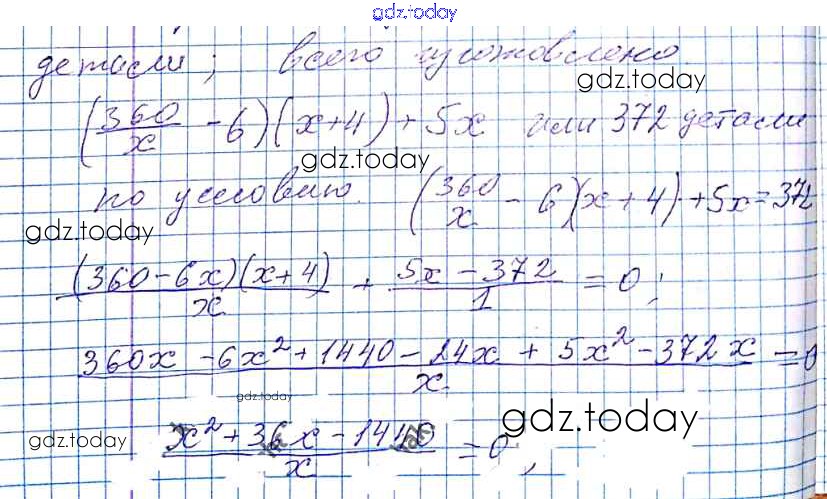 gdz.today
детали; всего изготовлено
gdz.today
(360/x - 6)(x+4) + 5x или 372 детали
gdz.today
по условию. (360/x - 6)(x+4) + 5x = 372
gdz.today
(360-6x)(x+4)/x + 5x-372/1 = 0;
360x - 6x² + 1440 - 24x + 5x² - 372x/x = 0
gdz.today
gdz.today
x² + 36x - 1440/x = 0,
gdz.today